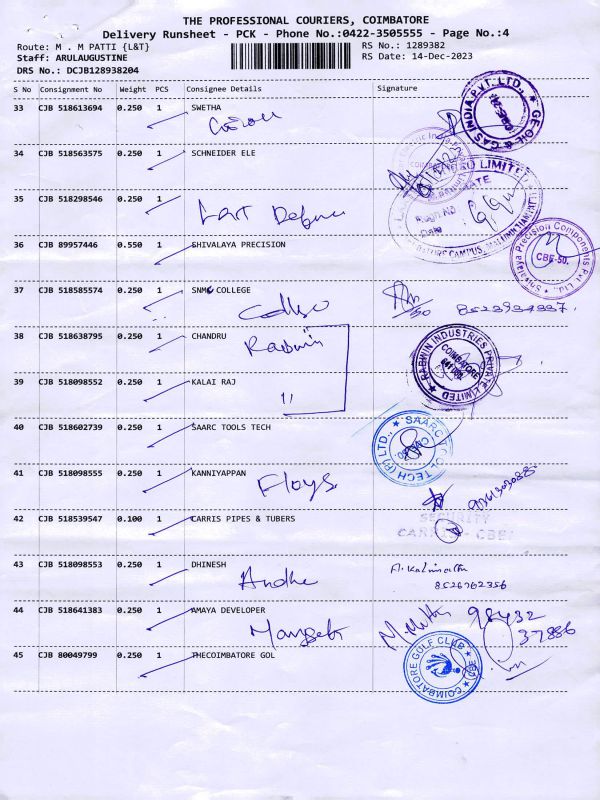 THE PROFESSIONAL COURIERS, COIMBATORE
Delivery Runsheet - PCK - Phone No.:0422-3505555 - Page No.:4
Route: M . M PATTI {L&T}
RS No.: 1289382
Staff: ARULAUGUSTINE
RS Date: 14-Dec-2023
DRS No.: DCJB128938204
S No Consignment No Weight PCS Consignee Details Signature
33 CJB 518613694 0.250 1 SWETHA
GE OIL & GAS INDIA PVT. LTD.,
34 CJB 518563575 0.250 1 SCHNEIDER ELE
35 CJB 518298546 0.250 1
LIMITED
CAMPUS,
36 CJB 89957446 0.550 1 SHIVALAYA PRECISION
Shivalaya Precision Components Pvt. Ltd.,
CBE-50.
37 CJB 518585574 0.250 1 SNMV COLLEGE
College
38 CJB 518638795 0.250 1 CHANDRU
Rabwin
RABWIN INDUSTRIES PRIVATE LIMITED
COIMBATORE
39 CJB 518098552 0.250 1 KALAI RAJ
11
40 CJB 518602739 0.250 1 SAARC TOOLS TECH
41 CJB 518098555 0.250 1 KANNIYAPPAN
Floys
42 CJB 518539547 0.100 1 CARRIS PIPES & TUBERS
SECURITY
43 CJB 518098553 0.250 1 DHINESH
8526762356
44 CJB 518641383 0.250 1 AMAYA DEVELOPER
98432
37886
45 CJB 80049799 0.250 1 THECOIMBATORE GOL
COIMBATORE GULF CLUB
CBE